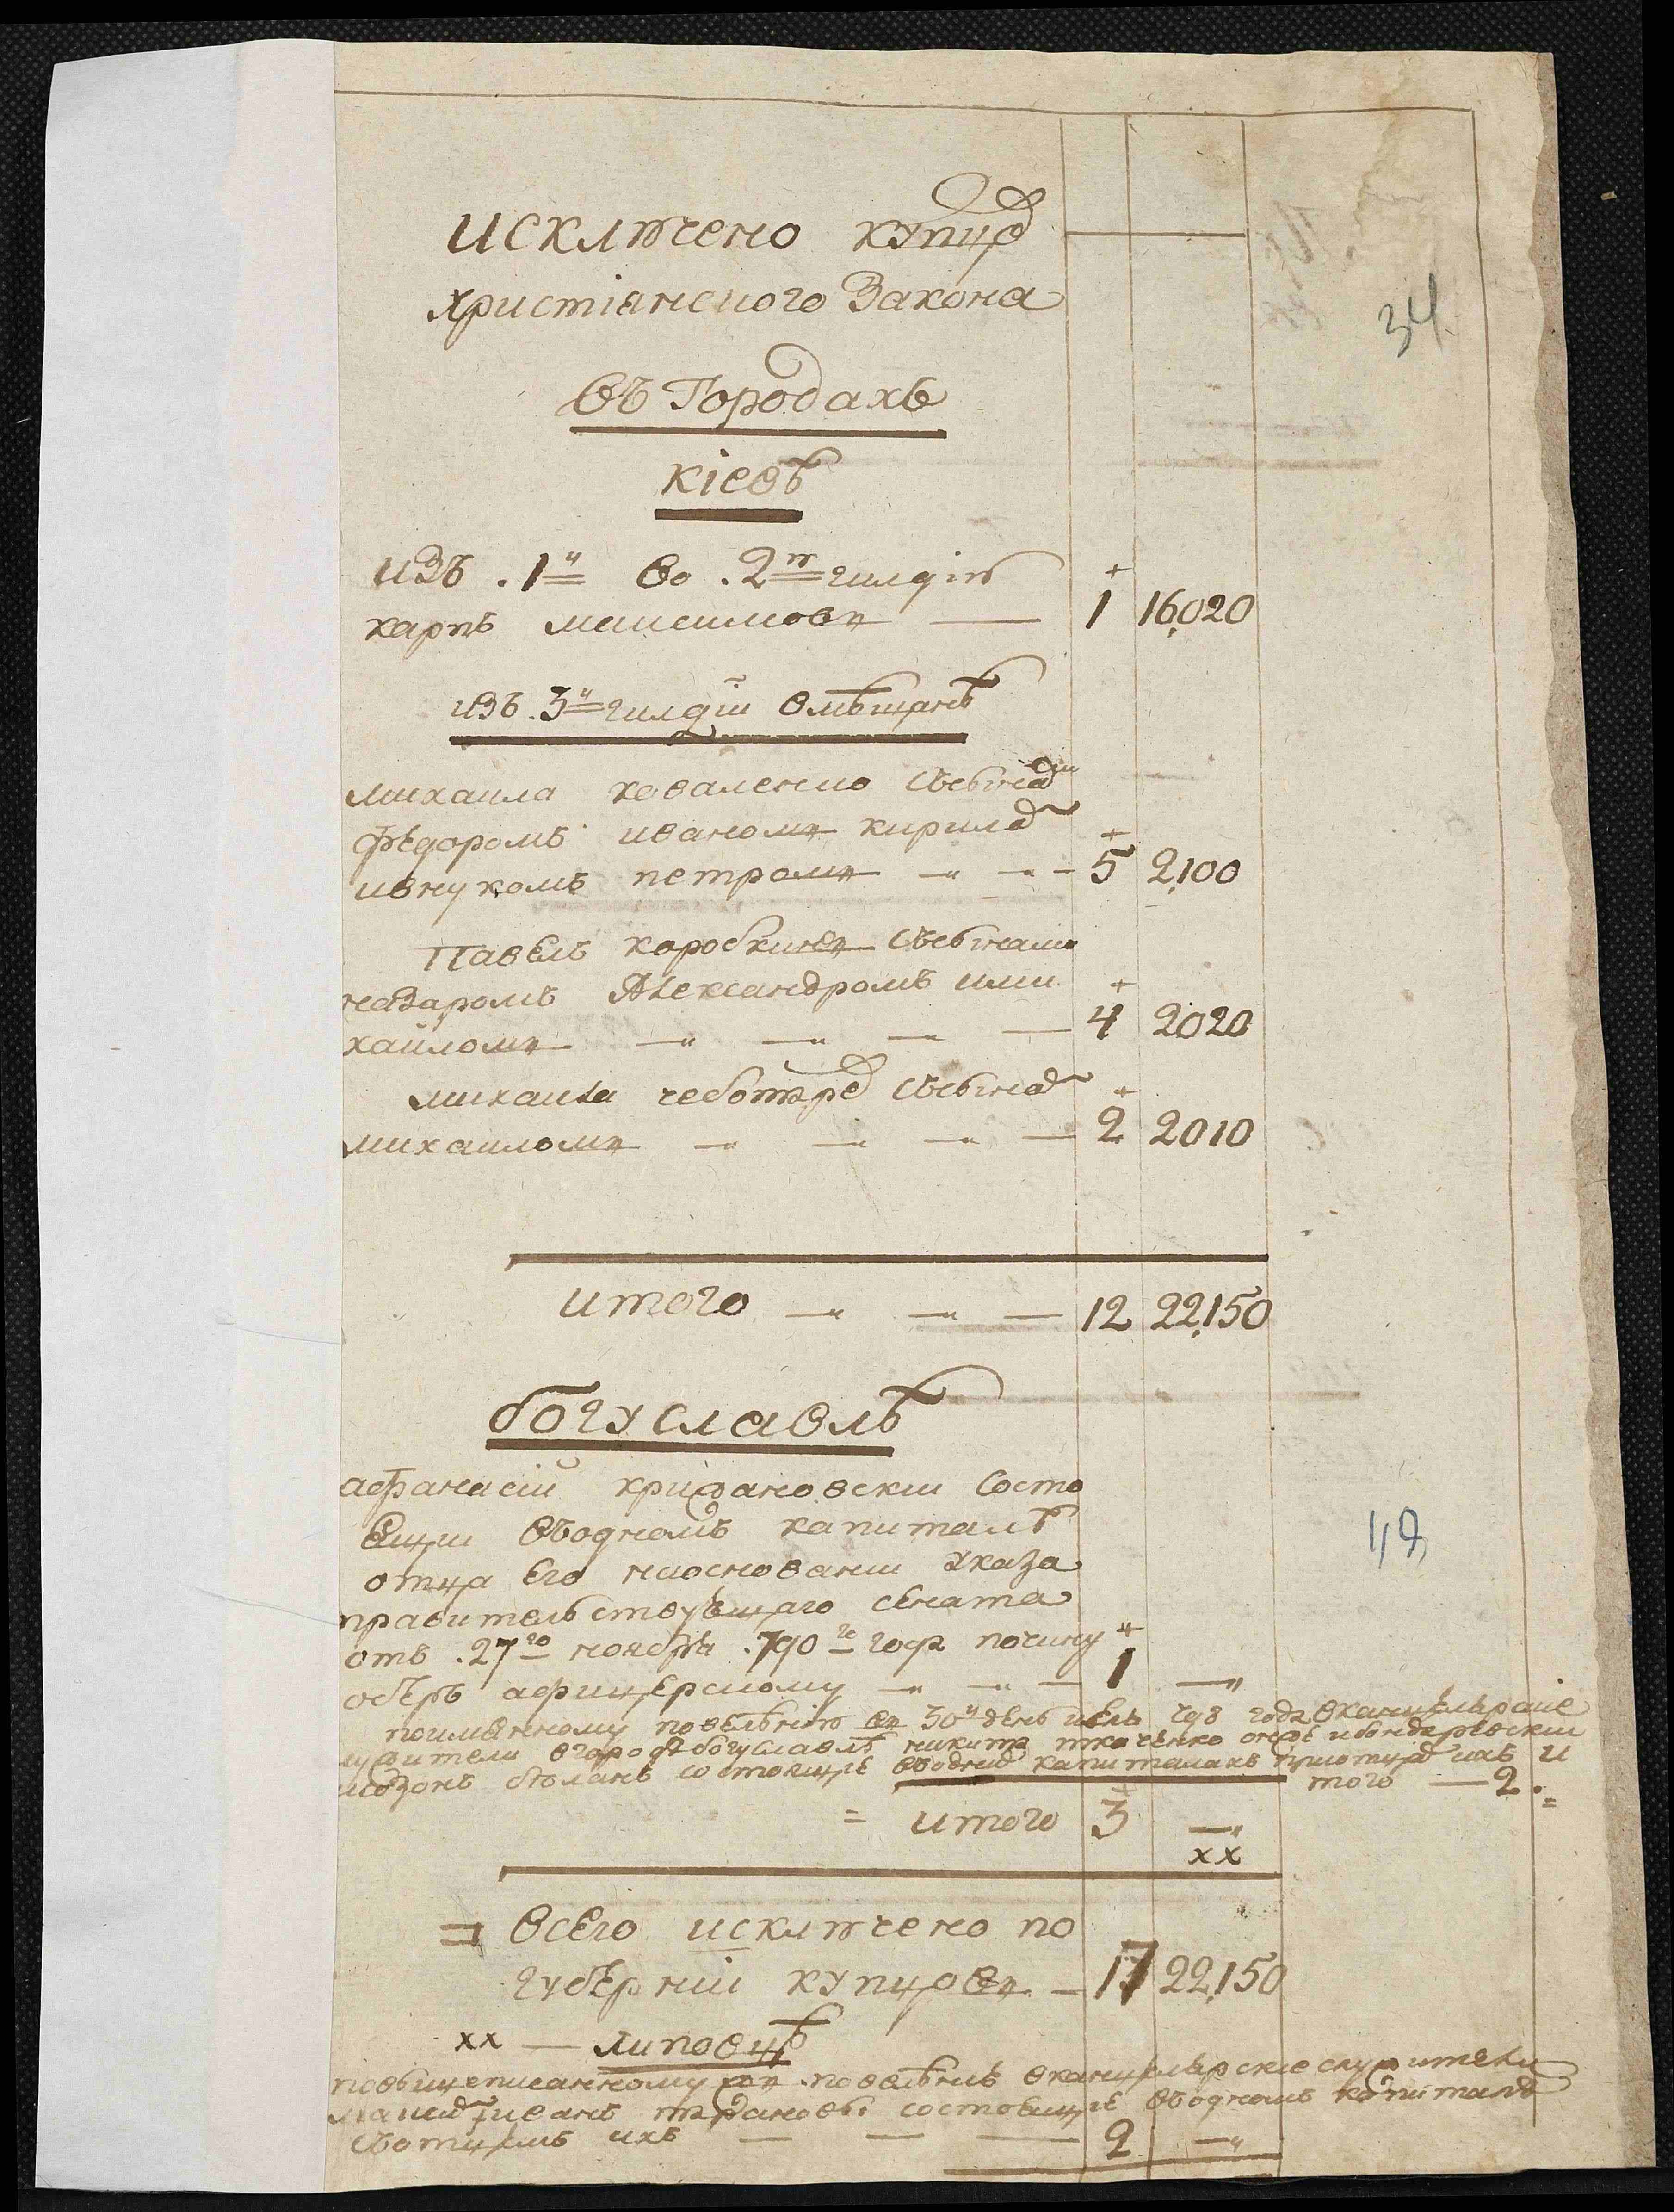 исключено купцов
христіянского Закона
34
въ Городахъ
кіевѣ
изъ . 1й во . 2ю гилдію
карпъ максимовъ — 1 16,020
изъ . 3й гилдіи вмѣщанѣ
михаила коваленко Ссынами
Фѣдоромъ иваномъ кириломъ
ивнукомъ петромъ — — - 5 2,100
Павелъ коробкинъ Ссынами
назаромъ Александромъ ими
хаиломъ — — — — 4 2020
михаила чеботарь Ссыномъ
михаиломъ — — — — 2 2010
итого — — — 12 22,150
богуславлѣ
афанасіи крижановскии Состо
Ящии Водномъ капиталѣ
отца Его наоснованіи Указа
правительствующаго Сената
отъ . 27го ноября . 790го года почину
оберъ афицерскому — — — 1 —
поимянному повелѣнію въ 30й день 798 года вканцелярскіе
служители вгородѣ богуславлѣ никита ткаченко
состоящіе водних капиталахъ сотцами ихъ и
того — 2 .
= итого 3 —
хх
= всего исключено по
губерніи купцовъ — 17 22,150
хх — липовцѣ
повышеписанному повелѣнію вканцелярские служители
иванъ состоящіе Водномъ капиталѣ
Сотцемъ ихъ — — — 2 —